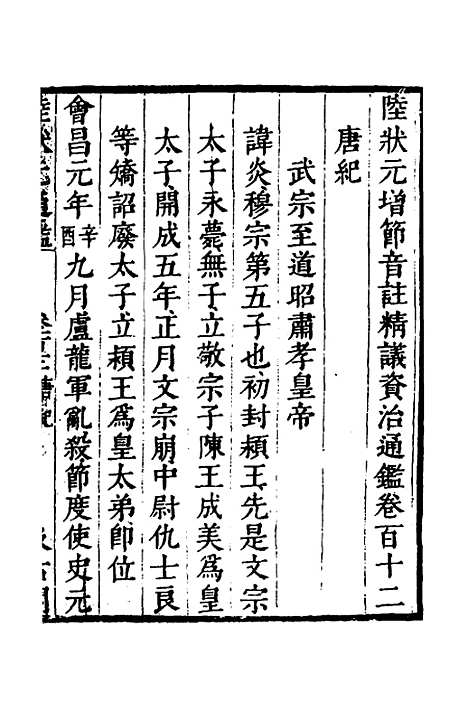 陸狀元增節音註精議資治通鑑卷百十二
唐紀
武宗至道昭肅孝皇帝
諱炎穆宗第五子也初封頴王先是文宗
太子永薨無子立敬宗子陳王成美爲皇
太子開成五年正月文宗崩中尉仇士良
等矯詔廢太子立頴王爲皇太弟卽位
會昌元年辛酉九月盧龍軍亂殺節度使史元